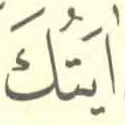 اٰيَتُكَ